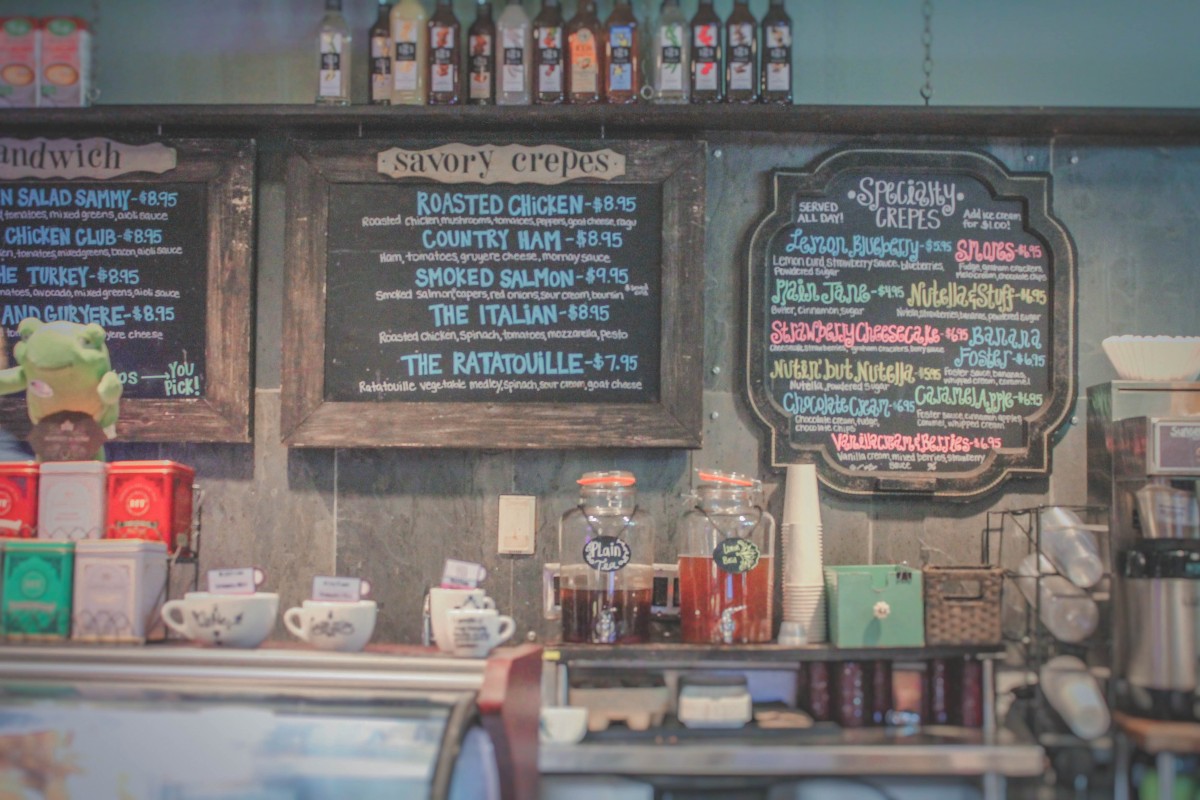 andwich
N SALAD SAMMY-$8.95
tomatoes, mixed greens, aioli sauce
CHICKEN CLUB-$8.95
tomatoes, mixed greens, bacon, aioli sauce
HE TURKEY-$8.95
matoes, avocado, mixed greens, aioli sauce
AND GURYERE-$8.95
gruyere cheese
OS → YOU
PICK!
savory crepes
ROASTED CHICKEN-$8.95
Roasted chicken, mushrooms, tomatoes, peppers, goat cheese, ragu
COUNTRY HAM-$8.95
Ham, tomatoes, gruyere cheese, mornay sauce
SMOKED SALMON-$9.95
Smoked salmon, capers, red onions, sour cream, boursin
THE ITALIAN-$8.95
Roasted chicken, spinach, tomatoes, mozzarella, pesto
THE RATATOUILLE-$7.95
Ratatouille vegetable medley, spinach, sour cream, goat cheese
SERVED
ALL DAY!
•Specialty•
CREPES
Add ice cream
for $1.00!
Lemon Blueberry-$5.95
Lemon curd, strawberry sauce, blueberries,
Powdered sugar
Smores-$6.95
Fudge, graham crackers,
chocolate chips
Plain Jane-$4.95
Butter, cinnamon, sugar
Nutella&Stuff-$6.95
Nutella, strawberries, bananas, powdered sugar
Strawberry Cheesecake-$6.95
Cheesecake, strawberries, graham crackers, berry sauce
Banana
Foster-$6.95
Foster sauce, bananas,
whipped cream, caramel
Nutin' but Nutella-$5.95
Nutella, Powdered sugar
Chocolate Cream-$6.95
Chocolate cream, fudge,
chocolate chips
Caramel Apple-$6.95
Foster sauce, cinnamon apples,
caramel, whipped cream
Vanilla Cream & Berries-$6.95
Vanilla cream, mixed berries, strawberry
sauce
Plain
Tea